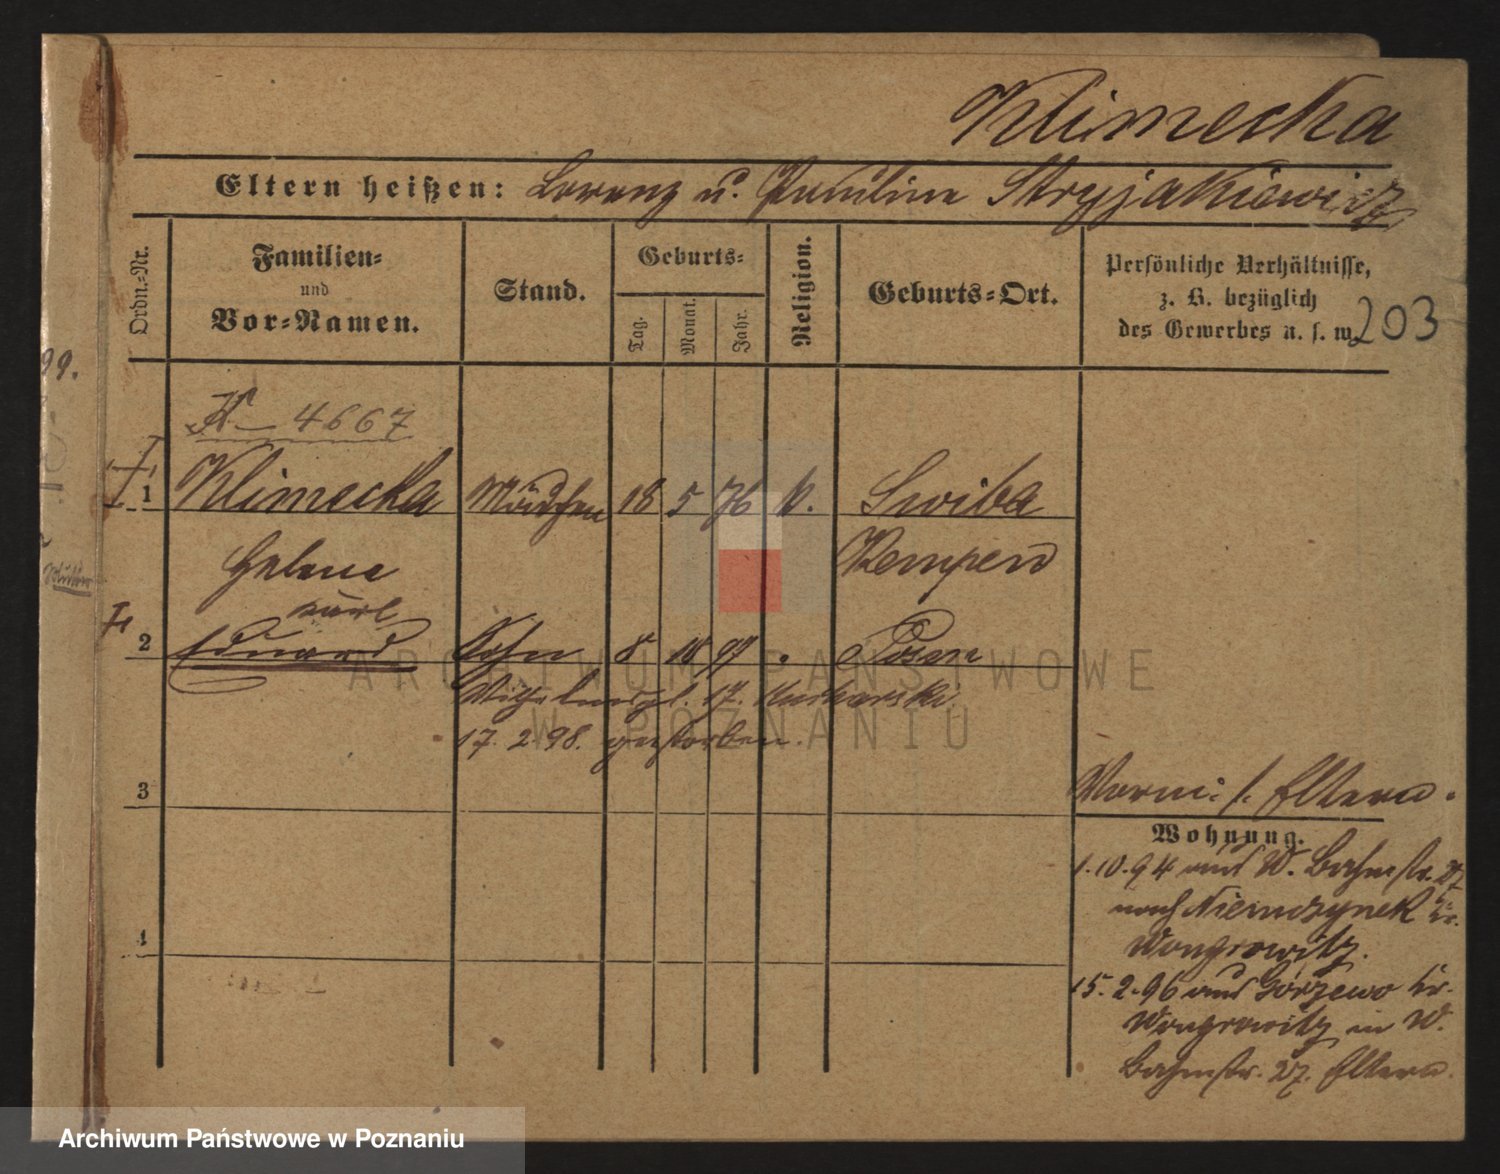 Klimecka
Eltern heißen: Lorenz u. Pauline Stryjakiewicz
Ordn.-Nr.
Familien-
und
Vor-Namen.
Stand.
Geburts-
Tag.
Monat.
Jahr.
Religion.
Geburts-Ort.
Persönliche Verhältnisse,
z. B. bezüglich
des Gewerbes u. s. w.
203
99.
K - 4667
1 Klimecka Mädchen 18 5 76 k. Swiba
Helene Kempen
Karl
2 Eduard Sohn 8 10 97 Posen
17. Kucharski
17. 2. 98. gestorben.
3
Vorm: s. Eltern.
Wohnung.
1.10.94 aus W. Bahnstr. 27
nach Niemczynek Kr.
Wongrowitz.
15.2.96 aus Gorzewo Kr.
Wongrowitz in W.
Bahnstr. 27. Eltern.
4
ARCHIWUM PAŃSTWOWE
W POZNANIU
Archiwum Państwowe w Poznaniu